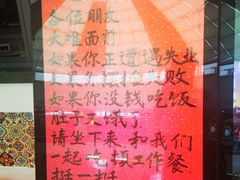 各位朋友
大难面前
如果你正遭遇失业
如果你堪摆失败
如果你没钱吃饭
肚子又饿了
请坐下来,和我们
一起吃顿工作餐
挺一挺